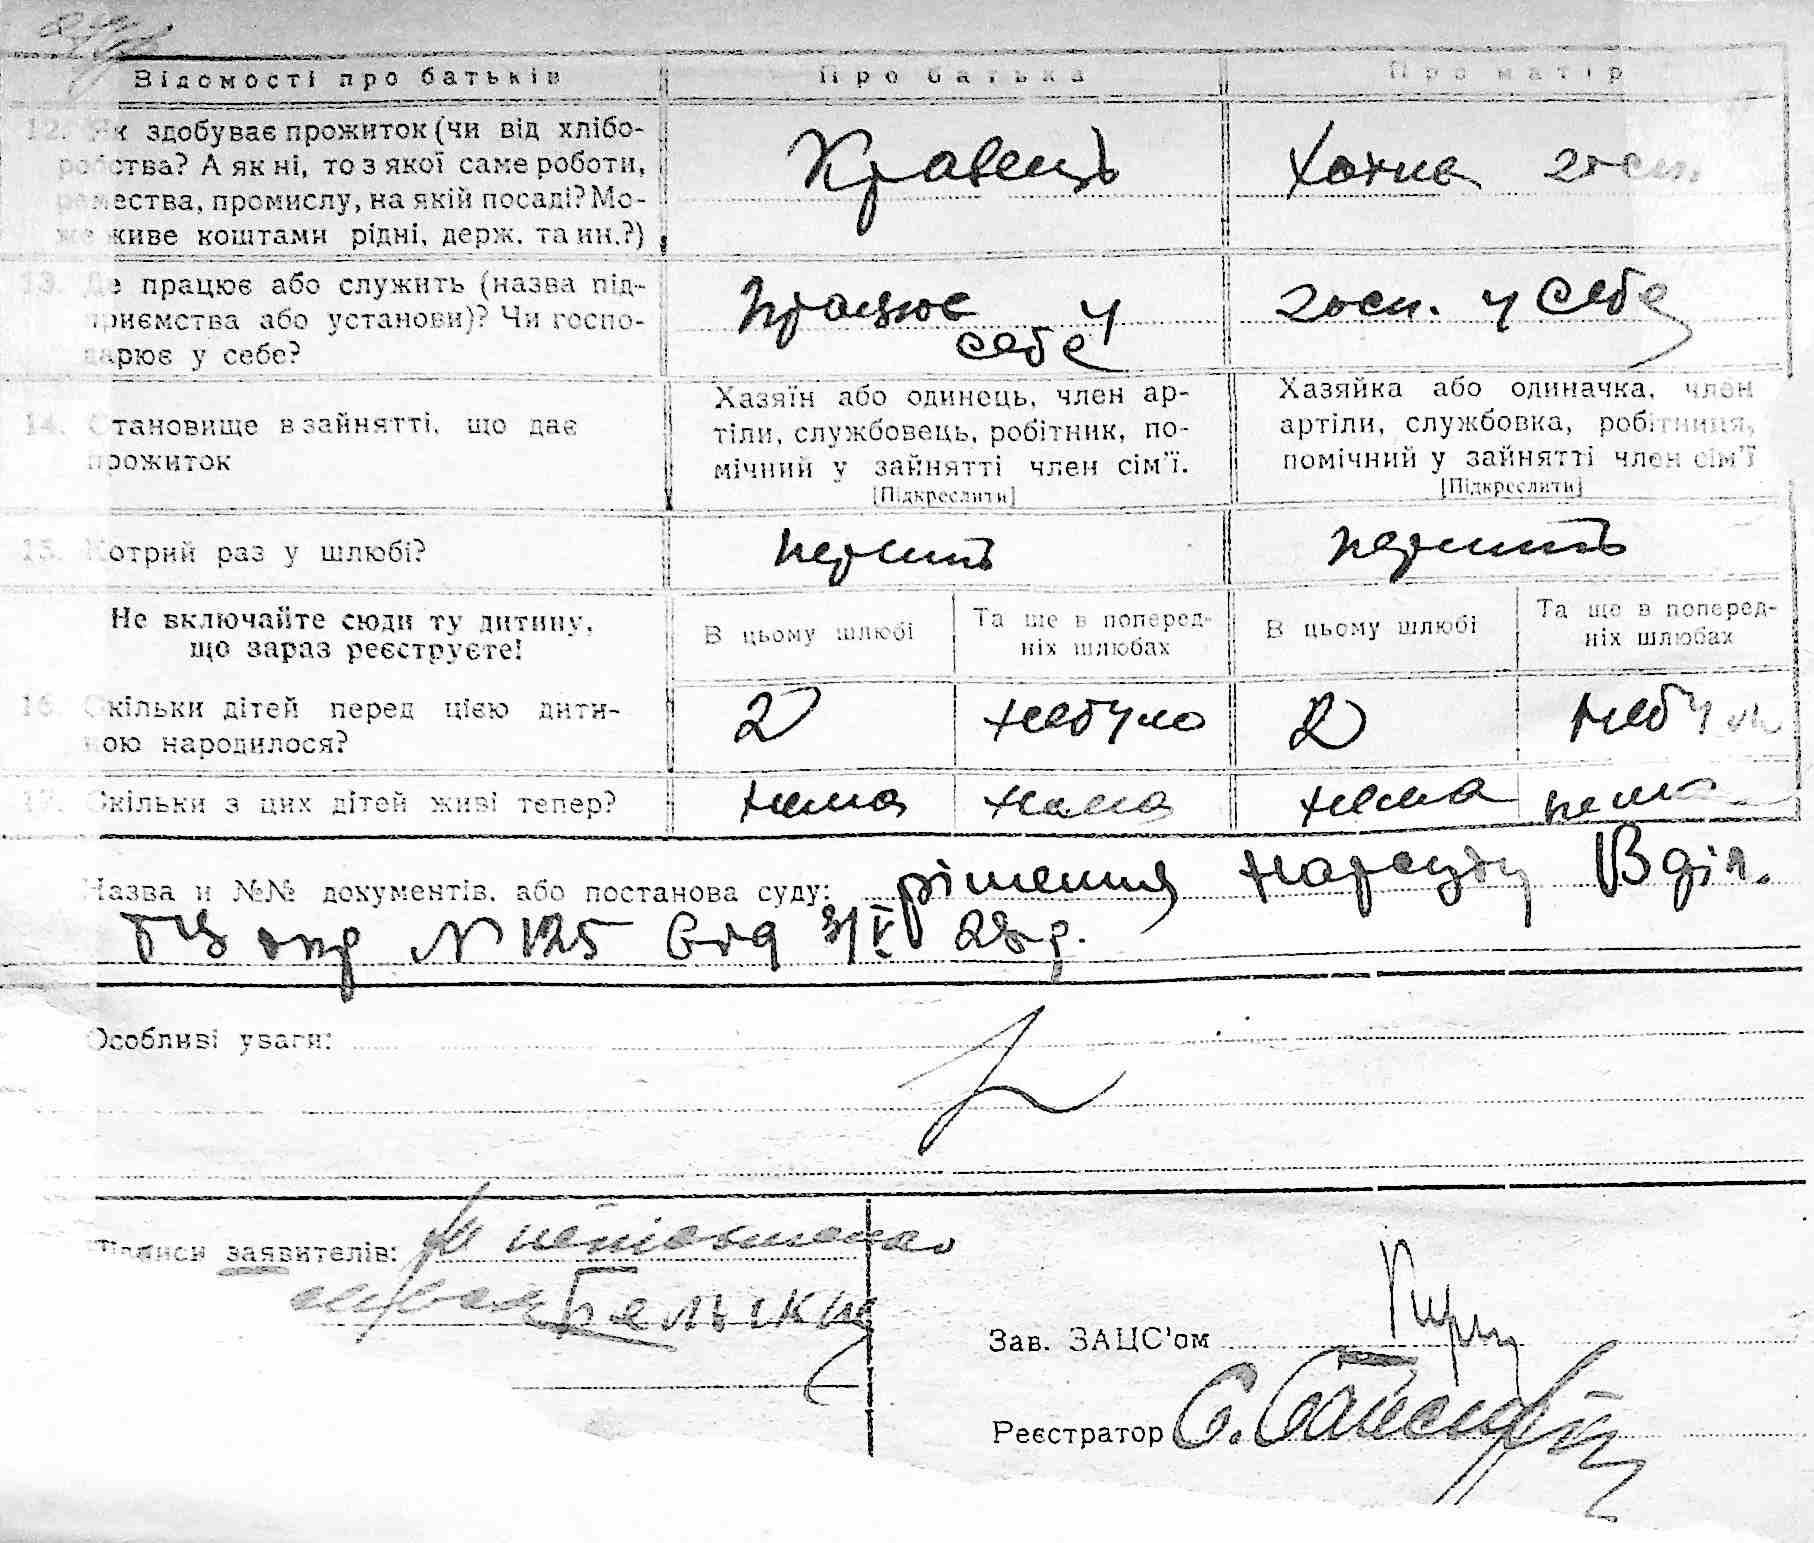 Відомості про батьків Про батька Про матір
12. Як здобуває прожиток (чи від хлібо-
робства? А як ні, то з якої саме роботи,
ремества, промислу, на якій посаді? Мо-
же живе коштами рідні, держ. та ин.?)
Кравець
Хатна госп.
13. Де працює або служить (назва під-
приємства або установи)? Чи госпо-
дарює у себе?
працює у
себе
госп. у себе
14. Становище в зайнятті, що дає
прожиток
Хазяїн або одинець, член ар-
тіли, службовець, робітник, по-
мічний у зайнятті член сім'ї.
[Підкреслити]
Хазяйка або одиначка, член
артіли, службовка, робітниця,
помічний у зайнятті член сім'ї
[Підкреслити]
15. Котрий раз у шлюбі?
перший
перший
Не включайте сюди ту дитину,
що зараз реєструєте!
В цьому шлюбі
Та ще в поперед-
ніх шлюбах
В цьому шлюбі
Та ще в поперед-
ніх шлюбах
16. Скільки дітей перед цією дити-
ною народилося?
2 небуло 2 небуло
17. Скільки з цих дітей живі тепер?
нема нема нема нема
Назва и №№ документів, або постанова суду: рішення нарсуду В діл.
окр N 125 від 3/V 28 р.
Особливі уваги:
Підписи заявителів: За неписьменого
Бельски
Зав. ЗАЦС'ом
Реєстратор С.